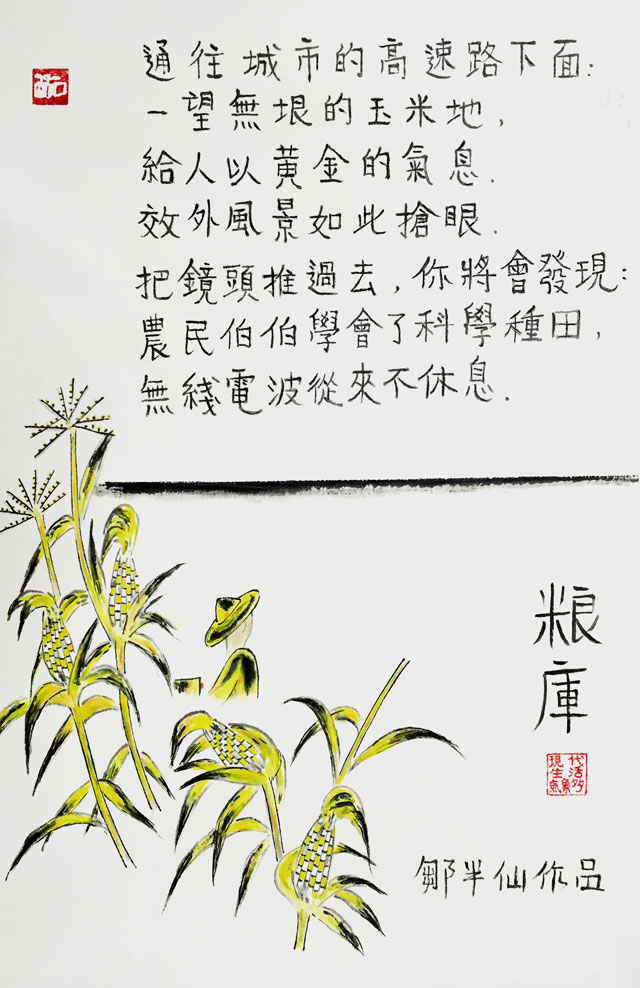 通往城市的高速路下面:
一望無垠的玉米地,
給人以黄金的氣息.
效外風景如此搶眼.
把鏡頭推過去,你將會發現:
農民伯伯學會了科學種田,
無綫電波從來不休息.
粮庫
鄒半仙作品